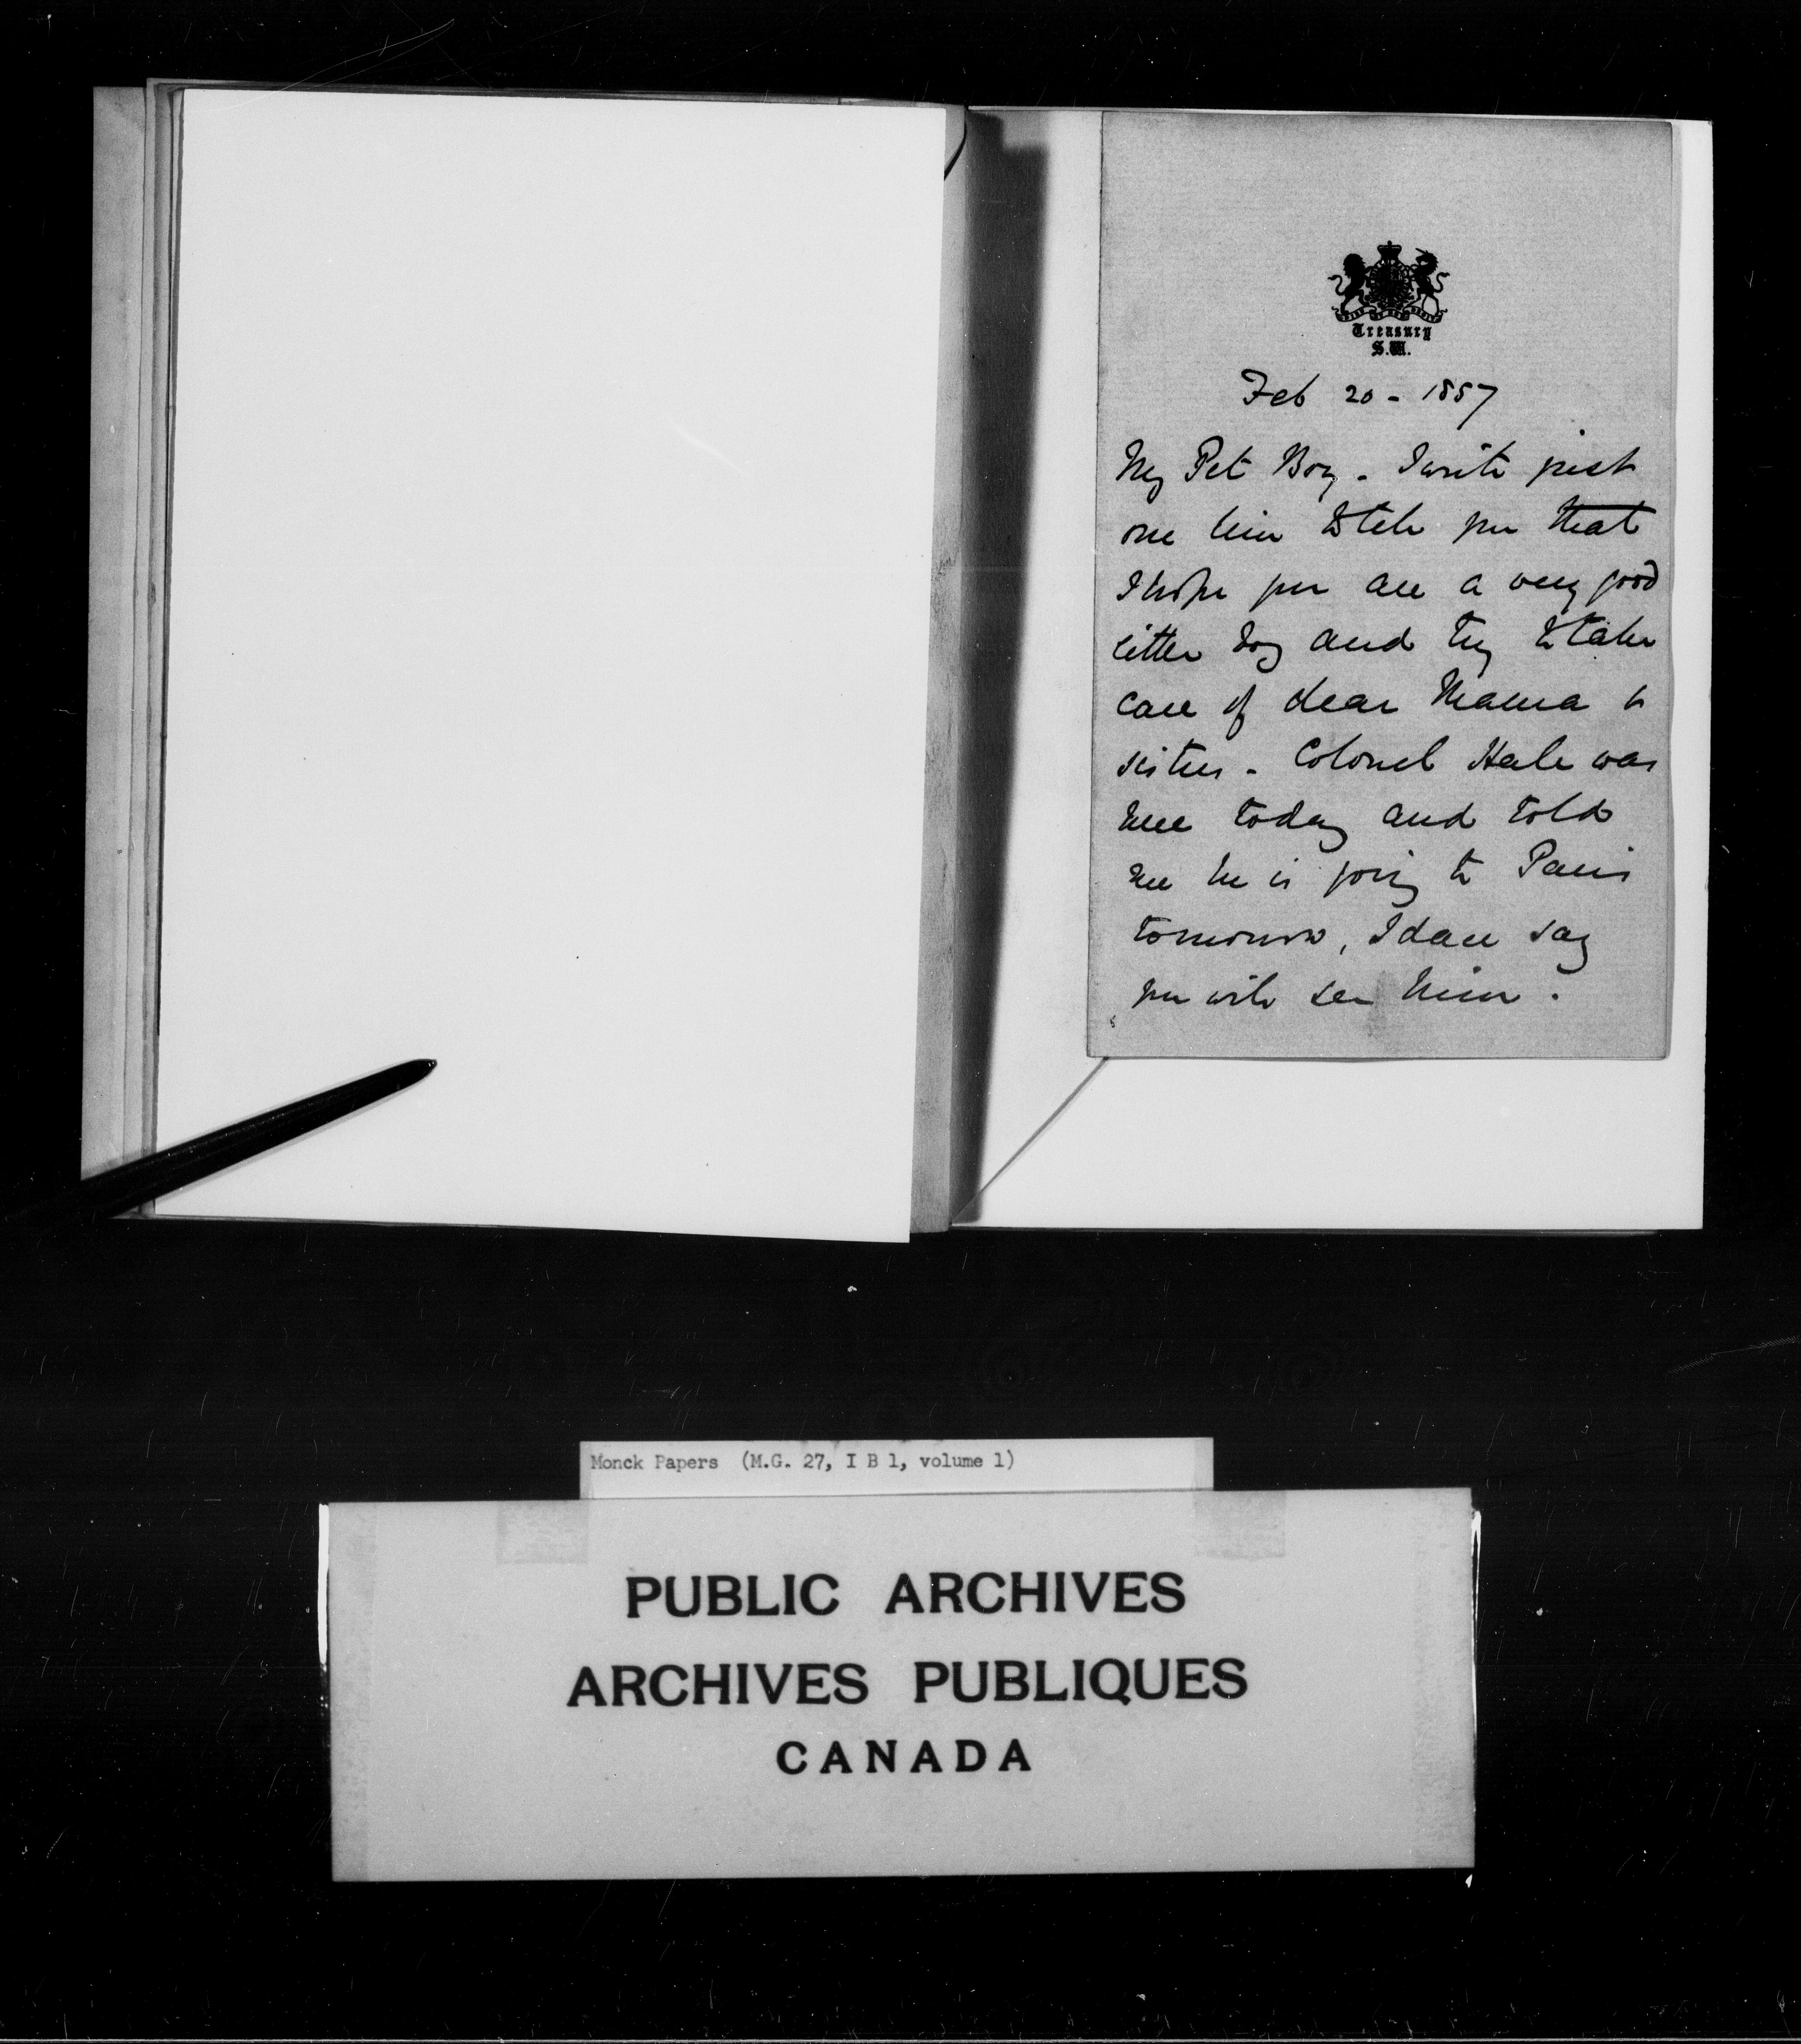 Treasury
S.W.
Feb 20 - 1857
My Pet Boy. I write just
one line to tell you that
I hope you are a very good
little boy and try to take
care of dear Mama &
sisters. Colonel Hale was
here today and told
me he is going to Paris
tomorrow, I dare say
you will see him.
Monck Papers (M.G. 27, I B 1, volume 1)
PUBLIC ARCHIVES
ARCHIVES PUBLIQUES
CANADA